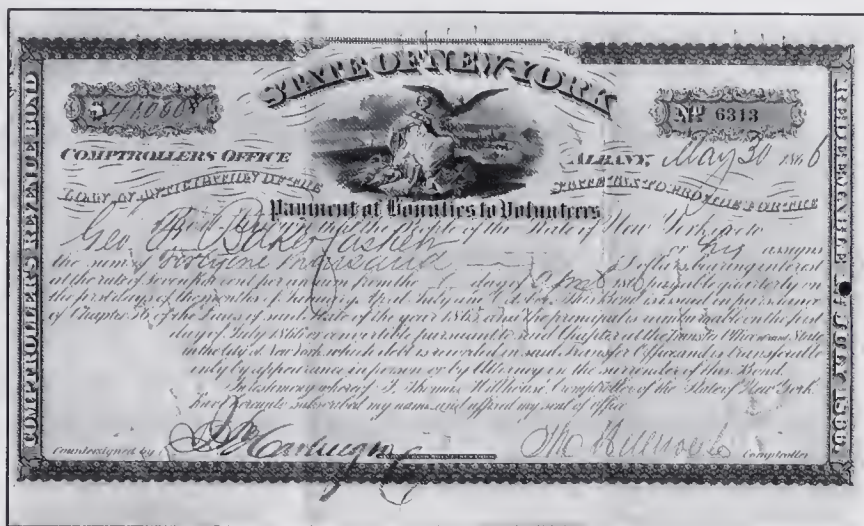 STATE OF NEW-YORK
$41000
No 6313
COMPTROLLERS OFFICE
ALBANY, May 30 1866
LOAN IN ANTICIPATION OF THE STATE TAX TO PROVIDE FOR THE
Payment of Bounties to Volunteers
that the People of the State of New York owe to
Geo Baker Cashier or his assigns
the sum of thousand Dollars bearing interest
at the rate of seven per cent per annum from the day of payable quarterly on
the first days of the months of January, April, July and October. This Bond is issued in pursuance
of Chapter 56 of the Laws of said State of the year 1865 and the principal is reimbursable on the first
day of July 1866 or convertible pursuant to said Chapter at the Transfer Office of said State
in the City of New York, which debt is recorded in said Transfer Office and is transferable
only by appearance in person or by Attorney on the surrender of this Bond.
In testimony whereof I, Thomas Hillhouse Comptroller of the State of New York
have hereunto subscribed my name and affixed my seal of office
Countersigned by
Tho Hillhouse Comptroller
COMPTROLLER'S REVENUE BOND
REDEEMABLE 1st JULY 1866